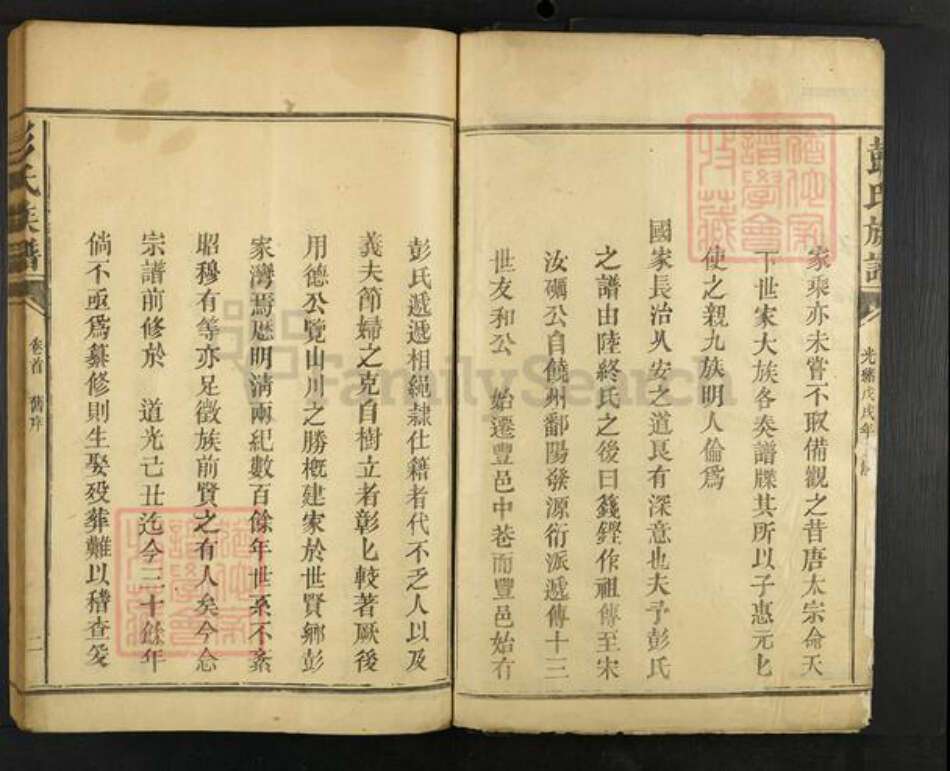 彭氏族譜
光緒戊戌年
家乘亦未嘗不取備觀之昔唐太宗命天
下世家大族各奏譜牒其所以子惠元匕
使之親九族明人倫爲
國家長治乆安之道良有深意也夫予彭氏
之譜由陸終氏之後曰籛鏗作祖傳至宋
汝礪公自饒州鄱陽發源衍派遞傳十三
世友和公 始遷豐邑中巷而豐邑始有
彭氏遞遞相繩隷仕籍者代不乏人以及
義夫節婦之克自樹立者彰匕較著厥後
用德公覽山川之勝概建家於世賢鄉彭
家灣焉歴明清兩紀數百餘年世系不紊
昭穆有等亦足徵族前賢之有人矣今念
宗譜前修於 道光己丑迄今三十餘年
倘不亟爲纂修則生娶殁葬難以稽查爰
彭氏族譜
卷首 舊序 二
譜學會
收藏
FamilySearch